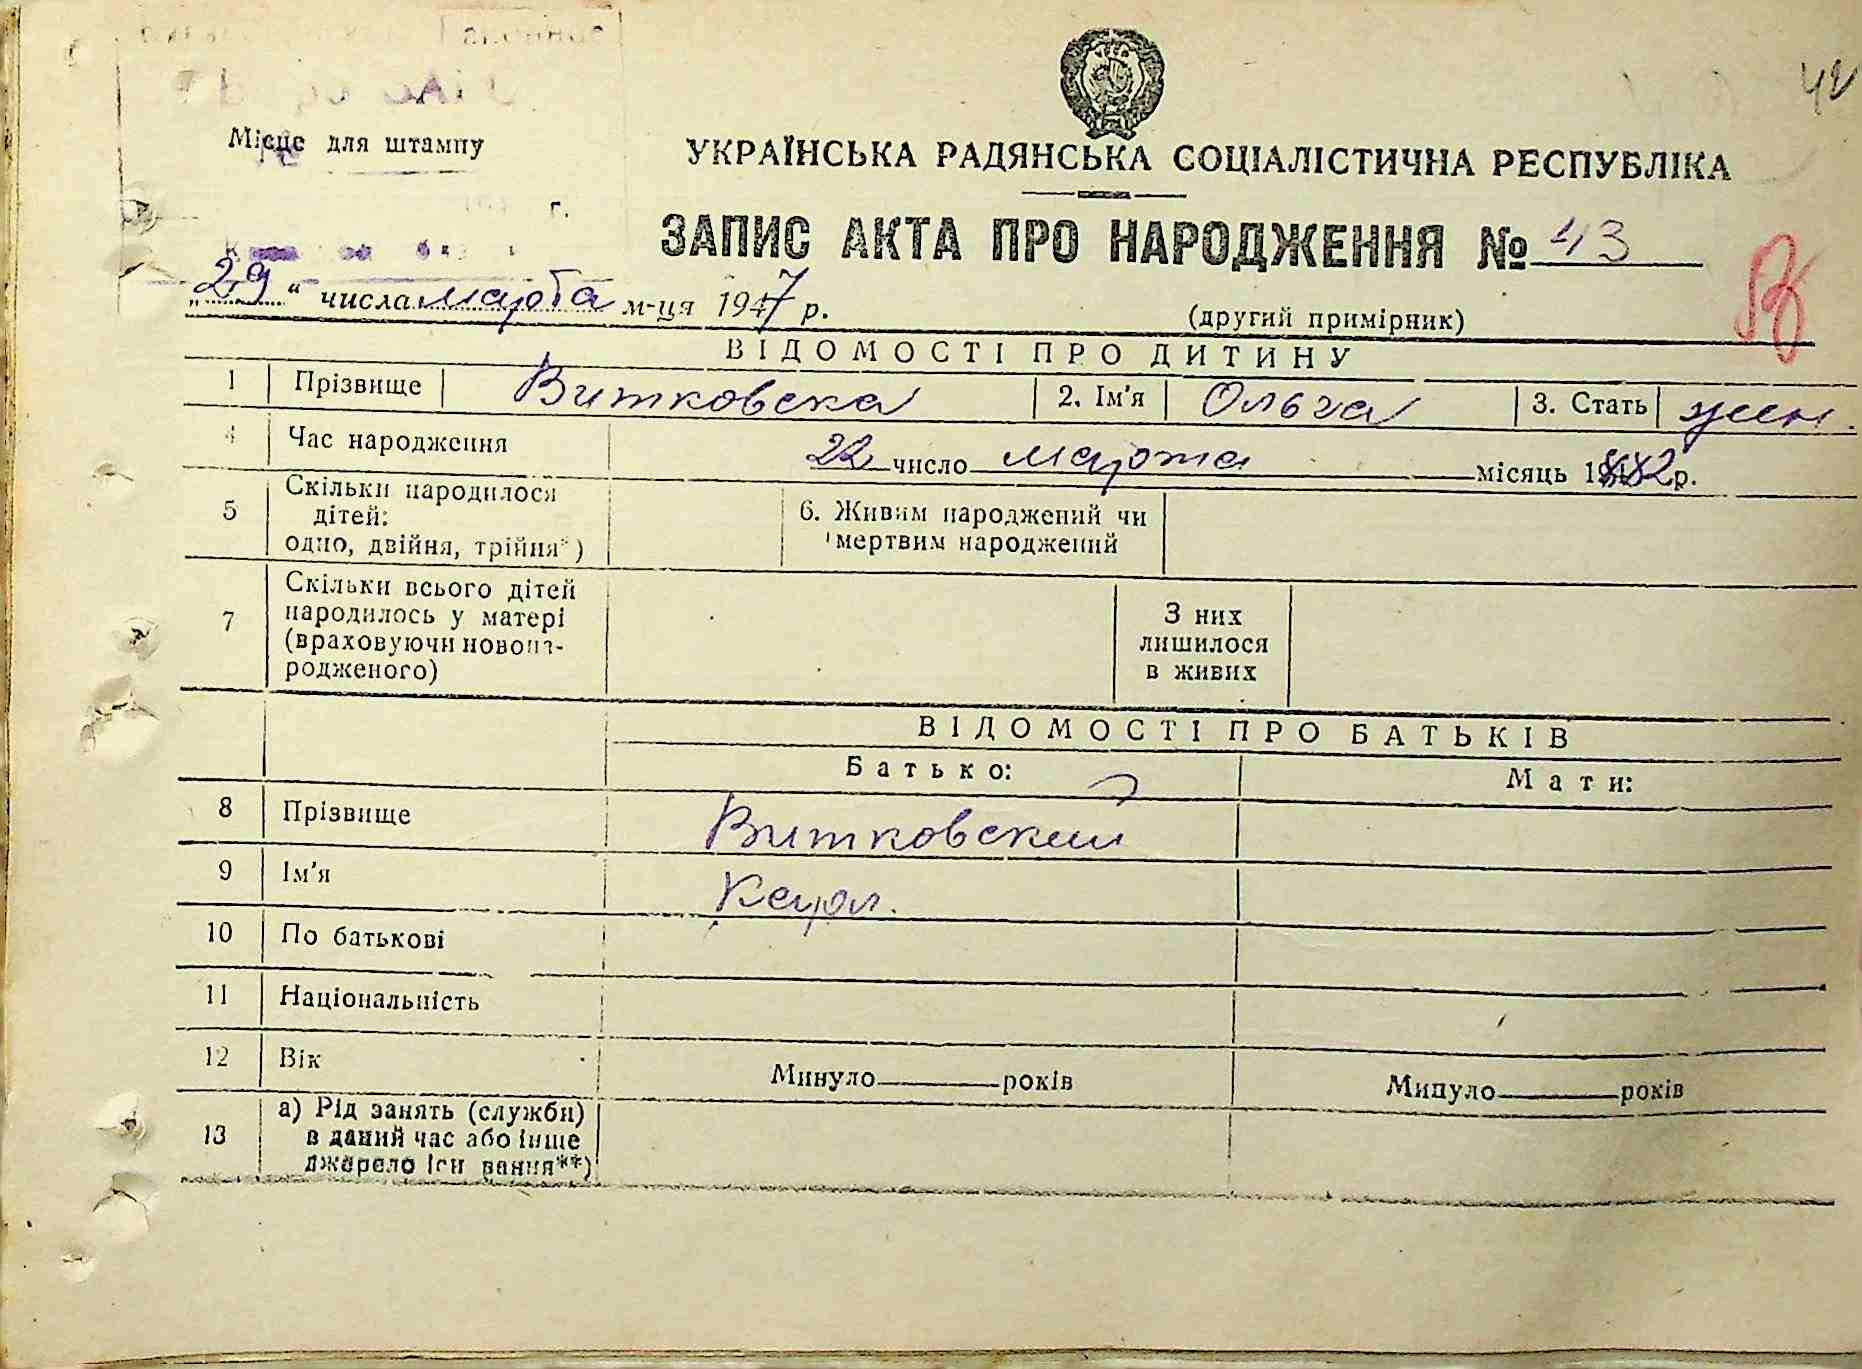 42
Місце для штампу
УКРАЇНСЬКА РАДЯНСЬКА СОЦІАЛІСТИЧНА РЕСПУБЛІКА
г.
ЗАПИС АКТА ПРО НАРОДЖЕННЯ № 43
„29“ числа марта м-ця 1947 р.
(другий примірник)
ВІДОМОСТІ ПРО ДИТИНУ
1 Прізвище Витковска 2. Ім'я Ольга 3. Стать жен.
4 Час народження 22 число марта місяць 1882 р.
5 Скільки народилося дітей: одно, двійня, трійня*) 6. Живим народжений чи мертвим народжений
7 Скільки всього дітей народилось у матері (враховуючи новона-родженого) З них лишилося в живих
ВІДОМОСТІ ПРО БАТЬКІВ
Батько: Мати:
8 Прізвище Витковский
9 Ім'я Карол.
10 По батькові
11 Національність
12 Вік Минуло років Минуло років
13 а) Рід занять (служби) в даний час або інше джерело існування**)